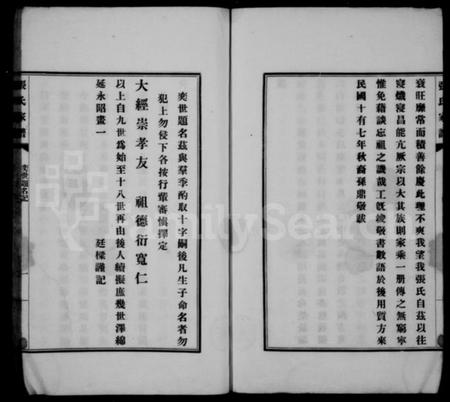 張氏家譜
衰旺靡常而積善餘慶此理不爽我望我張氏自茲以往
寖熾寖昌能亢厥宗以大其族則家乘一冊傳之無窮寧
惟免藉談忘祖之譏哉工既竣敬書數語於後用質方來
民國十有七年秋裔孫鼎敬跋
奕世題名茲與羣季酌取十字嗣後凡生子命名者勿
犯上勿侵下各按行輩審慎擇定
大經崇孝友　祖德衍寬仁
以上自九世為始至十八世再由後人續擬庶幾世澤綿
延永昭畫一　廷樑謹記
張氏家譜
奕世題名記
FamilySearch